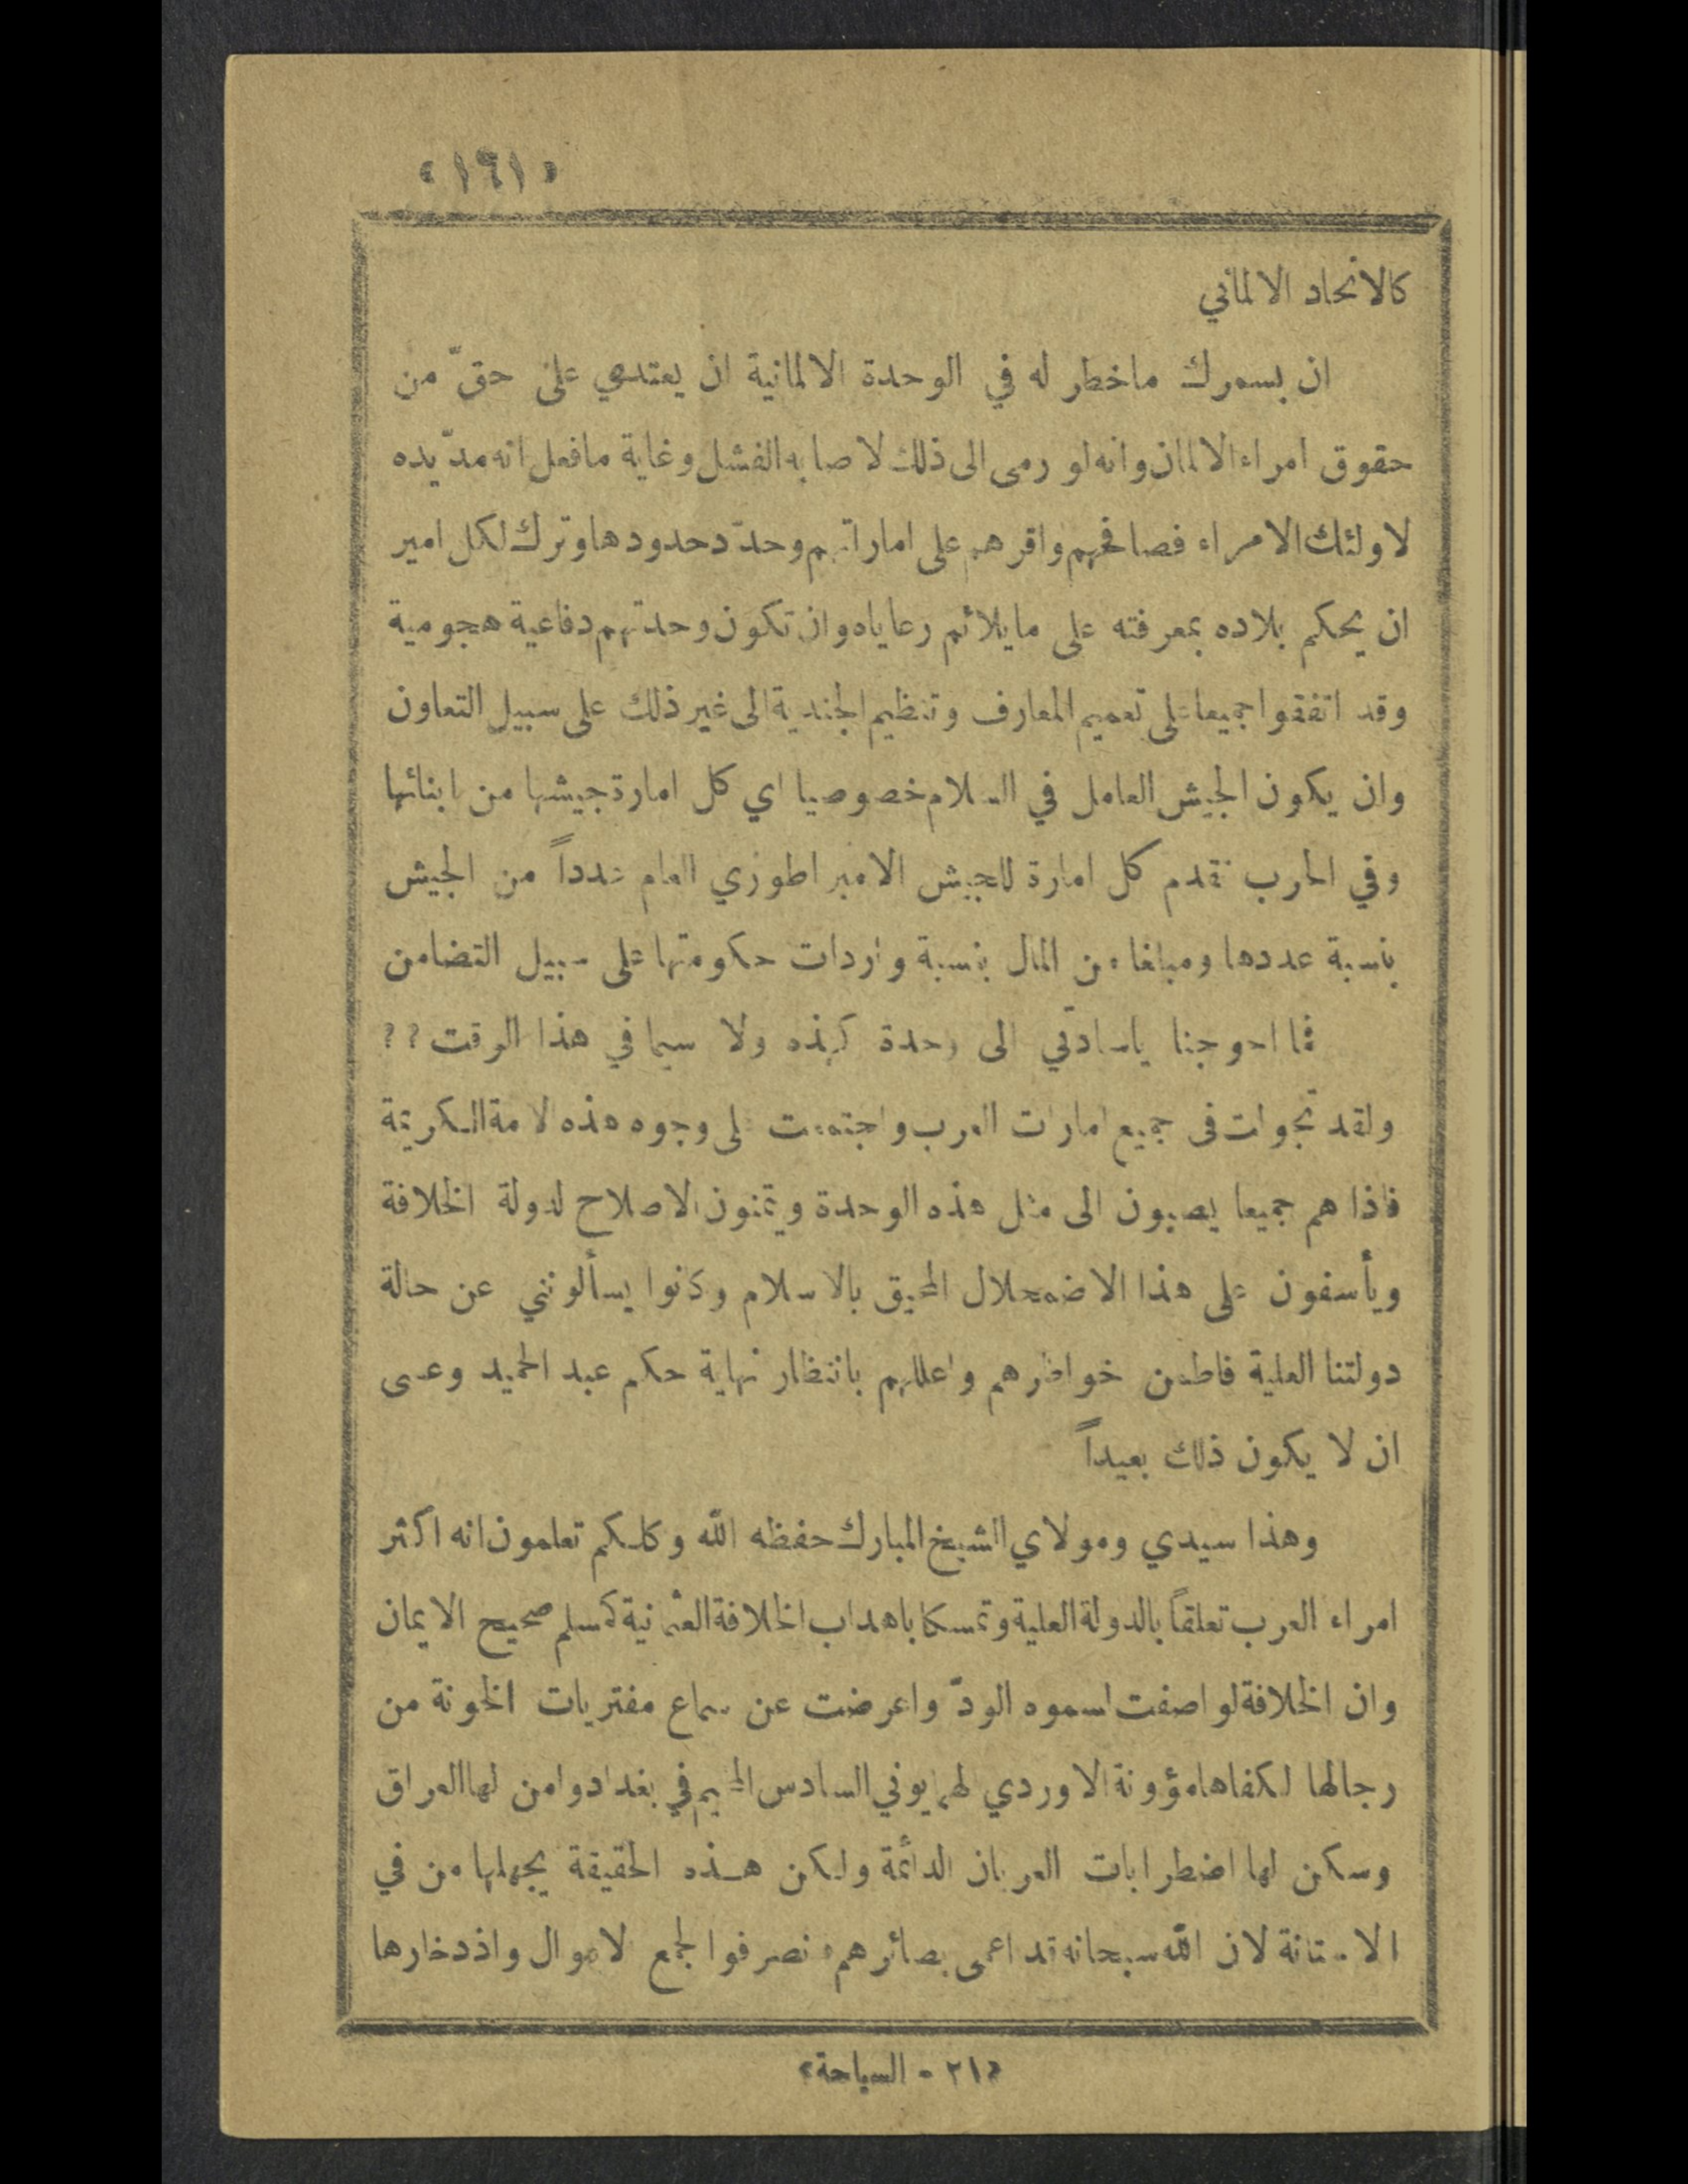 «١٦١»
كالاتحاد الالماني
ان بسمرك ماخطر له في الوحدة الالمانية ان يعتدي على حقّ من
حقوق امراء الالمان وانه لو رمى الى ذلك لاصابه الفشل وغاية مافعل انه مدّ يده
لاولئك الامراء فصافحهم واقرهم على اماراتهم وحدّد حدودها وترك لكل امير
ان يحكم بلاده بمعرفته على مايلائم رعاياه وان تكون وحدتهم دفاعية هجومية
وقد اتفقوا جميعا على تعميم المعارف وتنظيم الجندية الى غير ذلك على سبيل التعاون
وان يكون الجيش العامل في السلام خصوصيا اي كل امارة جيشها من ابنائها
وفي الحرب تقدم كل امارة للجيش الامبراطوري العام عدداً من الجيش
بنسبة عددها ومبلغا من المال بنسبة واردات حكومتها على سبيل التضامن
فما احوجنا ياسادتي الى وحدة كهذه ولا سيما في هذا الوقت ??
ولقد تجولت في جميع امارات العرب واجتمعت الى وجوه هذه الامة الكريمة
فاذا هم جميعا يصبون الى مثل هذه الوحدة ويتمنون الاصلاح لدولة الخلافة
ويأسفون على هذا الاضمحلال المحيق بالاسلام وكانوا يسألونني عن حالة
دولتنا العلية فاطمن خواطرهم واعللهم بانتظار نهاية حكم عبد الحميد وعسى
ان لا يكون ذلك بعيداً
وهذا سيدي ومولاي الشيخ المبارك حفظه الله وكلكم تعلمون انه اكثر
امراء العرب تعلقاً بالدولة العلية وتمسكا باهداب الخلافة العثمانية كمسلم صحيح الايمان
وان الخلافة لو اصفت لسموه الودّ واعرضت عن سماع مفتريات الخونة من
رجالها لكفاها مؤونة الاوردي الهمايوني السادس المخيم في بغداد وامن لها العراق
وسكن لها اضطرابات العربان الدائمة ولكن هذه الحقيقة يجهلها من في
الاستانة لان الله سبحانه قد اعمى بصائرهم فصرفوا لجمع الاموال واذدخارها
«٢١ - السياحة»